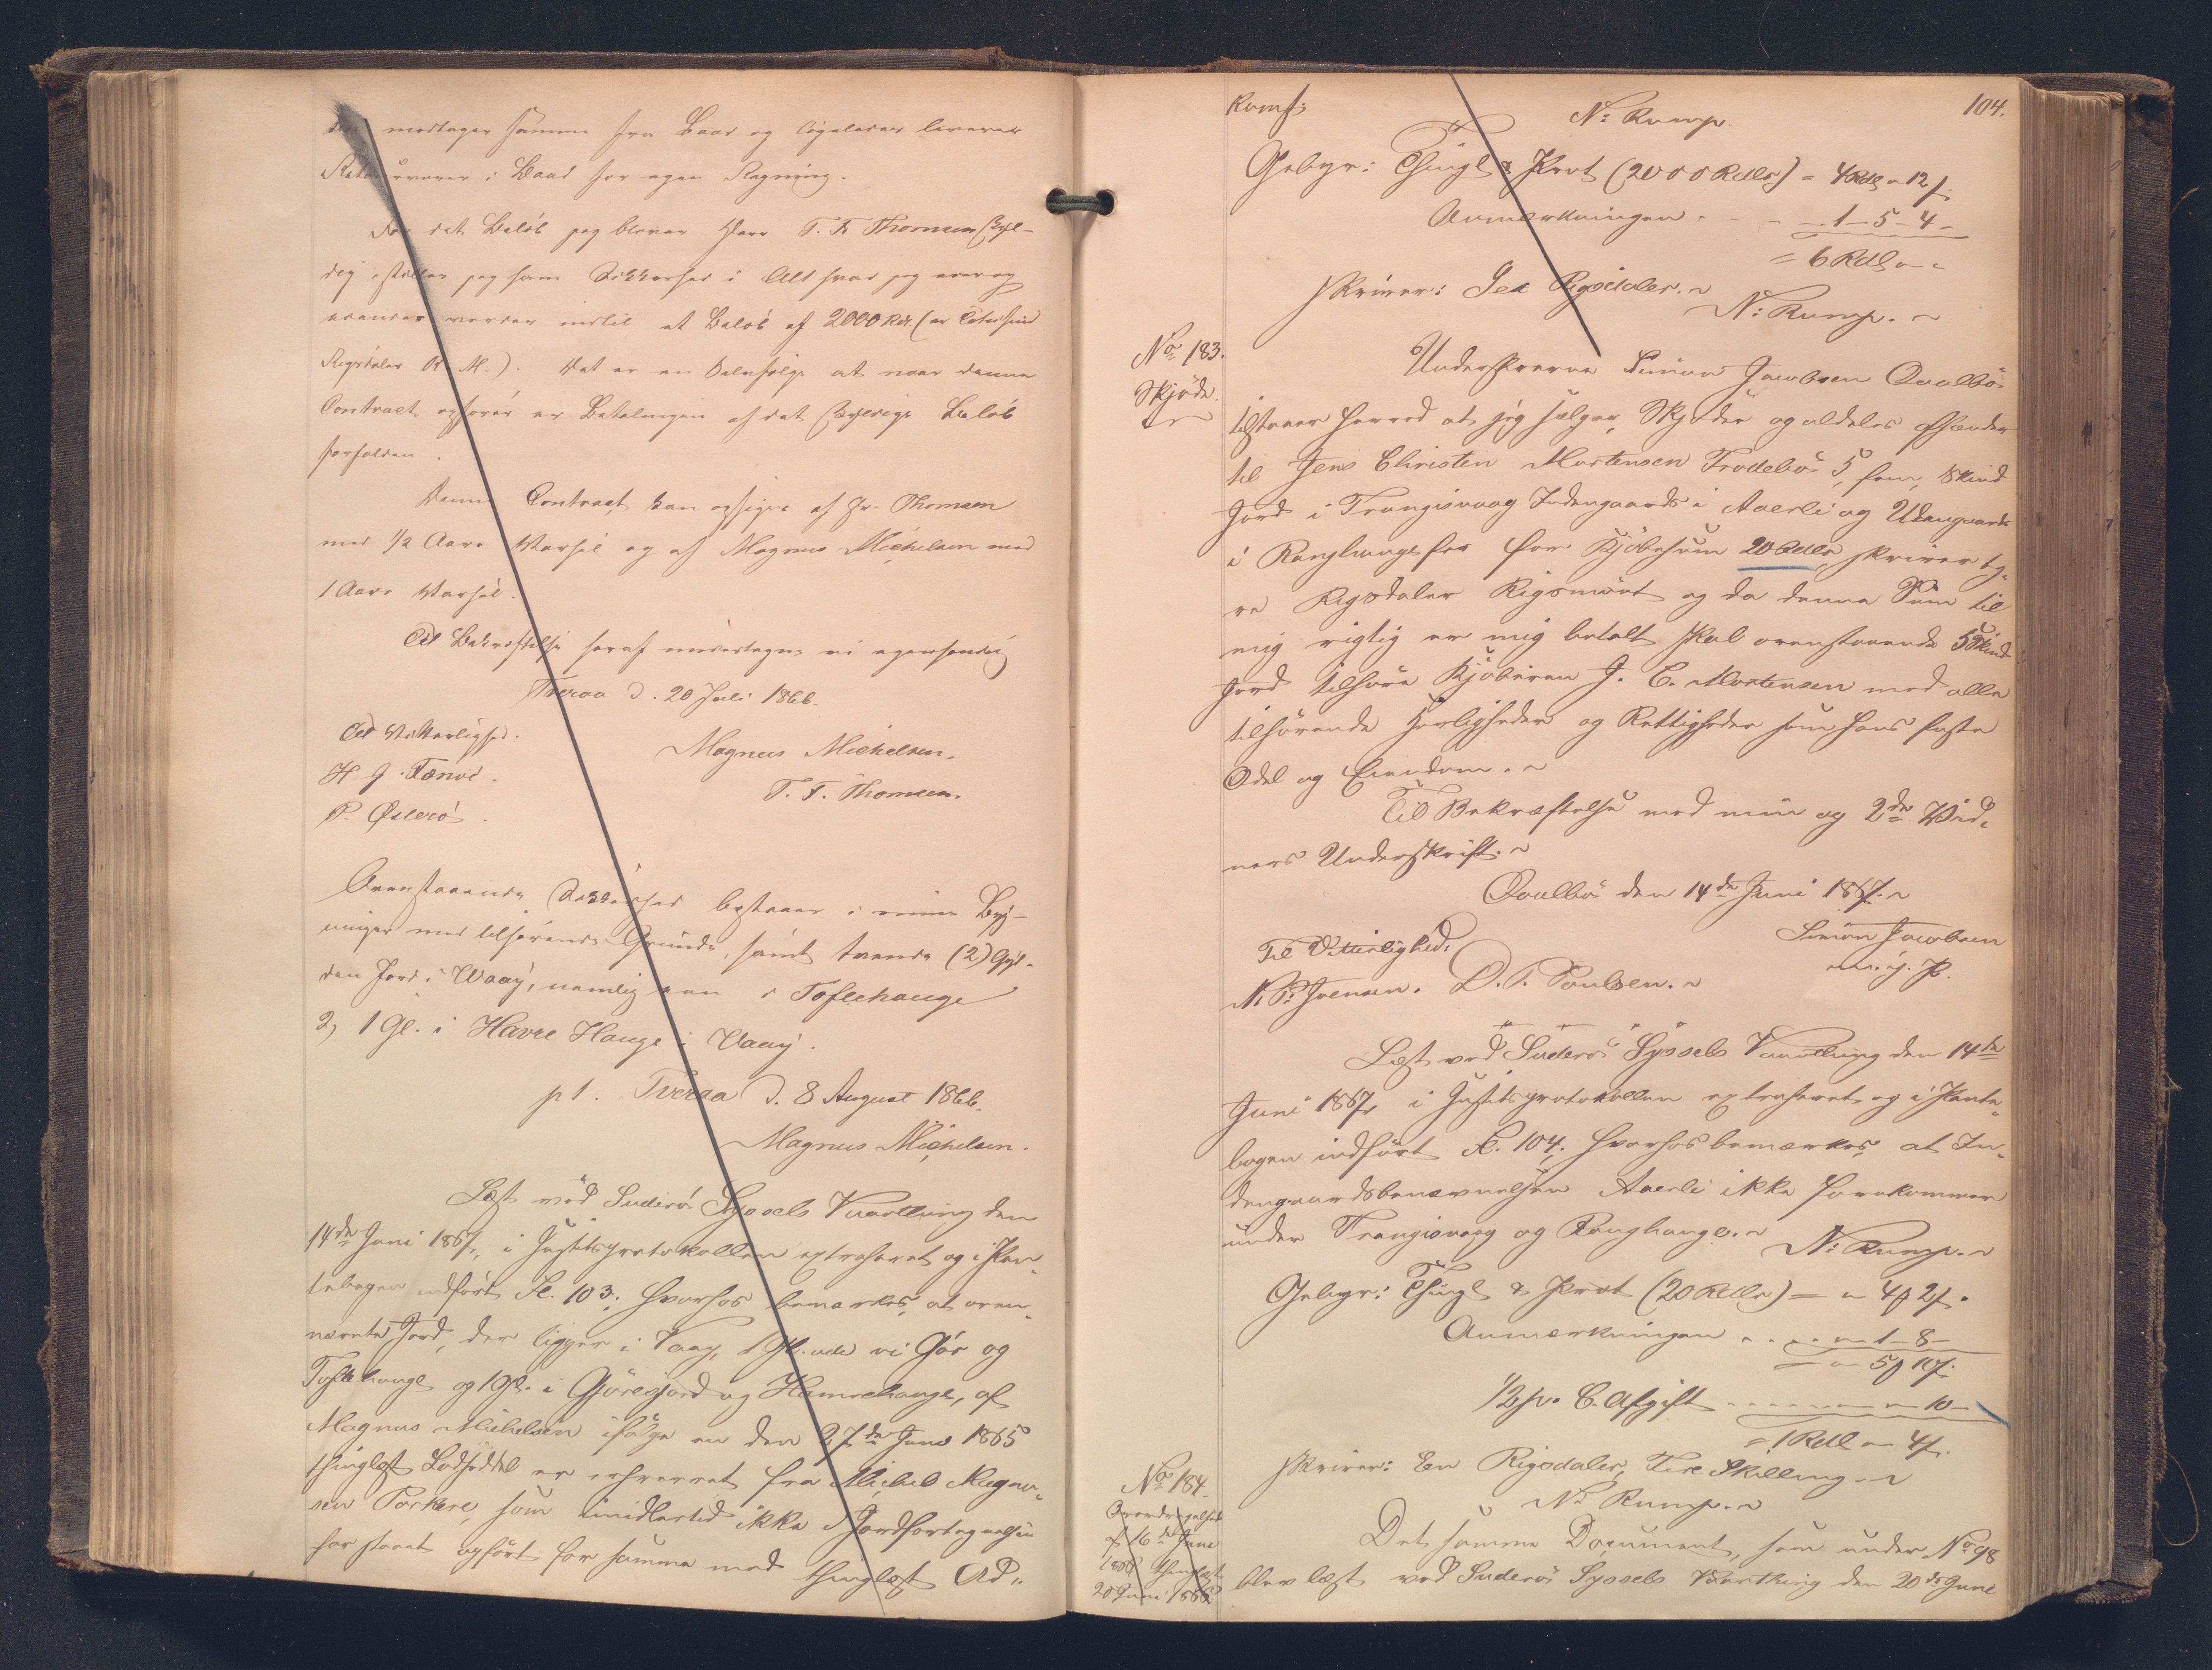 modtager samme fra Baad og ligeledes leverer
Returvarer i Baad for egen Regning.
For det Beløb jeg bliver Herr T. F. Thomsen skyl-
dig stiller jeg ham Sikkerhed i Alt hvad jeg eier og
eiendes vorder indtil et Beløb af 2000 Rdr (er Totusind
Rigsdaler R. M.). Det er en Selvfølge at naar denne
Contract ophører er Betalingen af det skyldige Beløb
forfalden.
Denne Contract kan opsiges af Hr. Thomsen
med 1/2 Aars Varsel og af Magnus Michelsen med
1 Aars Varsel.
Til Bekræftelse heraf undertegne vi egenhændig
Tveraa d. 20 Juli 1866.
Til Vitterlighed:
Magnus Michelsen.
H J. Tænvi.
T. F. Thomsen.
P. Østerö.
Ovenstaaende Sikkerhed bestaaer i mine Byg-
ninger med tilhørende Grunde, samt tvende (2) Gyl-
den Jord i Waag, nemlig een i Toftehauge
2, 1 Gl. i Havre Hauge i Vaag.
p t. Tveraa d. 8 August 1866.
Magnus Michelsen.
Læst ved Suderö Syssels Vaarthing den
14de Juni 1867, i Justitsprotokollen extraheret og i Pan-
tebogen indført Fl. 103; hvorhos bemærkes, at oven-
nævnte Jord, der ligger i Vaag, 1 Gl. ude vi Gjör og
Toftehauge og 1 Gl. i Gjöregjord og Hamrehauge, af
Magnus Michelsen ifølge en den 27de Juni 1865
thinglæst Lodseddel er erhvervet fra Michel Magnu-
sen Porkere, som imidlertid ikke i Jordfortegnelsen
har staaet opført for samme med thinglæst Ad-
Komst;
N: Rump.
104.
Gebyr: Thingl & Prot (2000 Rdlr) = 4 Rdl " 12 ß
Anmærkningen - - - 1 - 5 - 4 -
= 6 Rdl " "
skriver: Sex Rigsdaler.
N: Rump.
No 183.
Skjöde.
Underskrevne Simon Jacobsen Qvalbö
tilstaaer herved at jeg sælger, skjøder og aldeles afhænder
til Jens Christen Mortensen Frodebö 5, fem, Skind
Jord i Trangisvaag Indengaards i Aaerli og Udengaards
i Ranghauge for for Kjöbesum 20 Rdlr, skriver ty-
ve Rigsdaler Rigsmönt og da denne Sum til
mig rigtig er mig betalt skal ovenstaaende 5 Skind
Jord tilhøre Kjöberen J. C. Mortensen med alle
tilhørende Herligheder og Rettigheder som hans faste
Odel og Eiendom.
Til Bekræftelse med min og 2de Vid-
ners Underskrift.
Qvalbö den 14de Juni 1867.
Simon Jacobsen
Til Vitterlighed:
m. f. P.
N. P. Joensen. D. P. Poulsen.
Læst ved Suderö Syssels Vaarthing den 14de
Juni 1867, i Justitsprotokollen extraheret og i Pante-
bogen indført Fl. 104; hvorhos bemærkes, at In-
dengaardsbenævnelsen Aaerli ikke forekommer
under Trangisvaag og Ranghauge.
N: Rump.
Gebyr: Thingl & Prot (20 Rdlr) = " 4 ß 2 ß.
Anmærkningen - - - " - 1 - 8 -
= " 5 ß 10 ß.
1/2 pr. C. Afgift - - - - " - 10 -
= 1 Rdl " 4 ß.
skriver: Een Rigsdaler, Fire Skilling.
N: Rump.
No 184.
af 16de Juni
1866 thinglæst
20 Juni 1866
Det samme Document, som under No 98
blev læst ved Suderö Syssels Vaarthing den 20de Juni